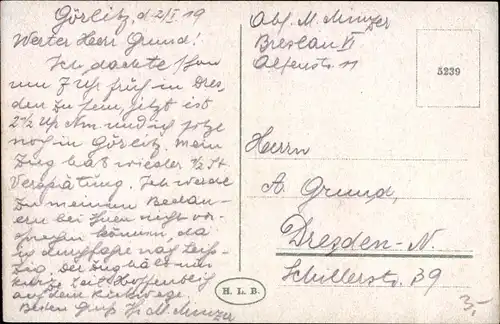 Görlitz, d 2/I 19
Werter Herr Grund!
Ich dachte schon
um 7 Uhr früh in Dres,
den zu sein, jetzt ist
2 1/2 Uhr Nm. und ich sitze
noch in Görlitz. Mein
Zug hat wieder 1/2 St
Verspätung. Ich werde
zu meinem Bedau-
ern bei Ihnen nicht vor-
sprechen können, da
ich durchfahre nach Leip-
zig. Der Zug hält nur
kurze Zeit. Hoffentlich
auf dem Rückwege.
Besten Gruß Ihr M. Münzer
Abs. M. Münzer
Breslau VI
Alsenstr. 11
5239
Herrn
A. Grund,
Dresden-N.
Schillerstr. 39
H. L. B.